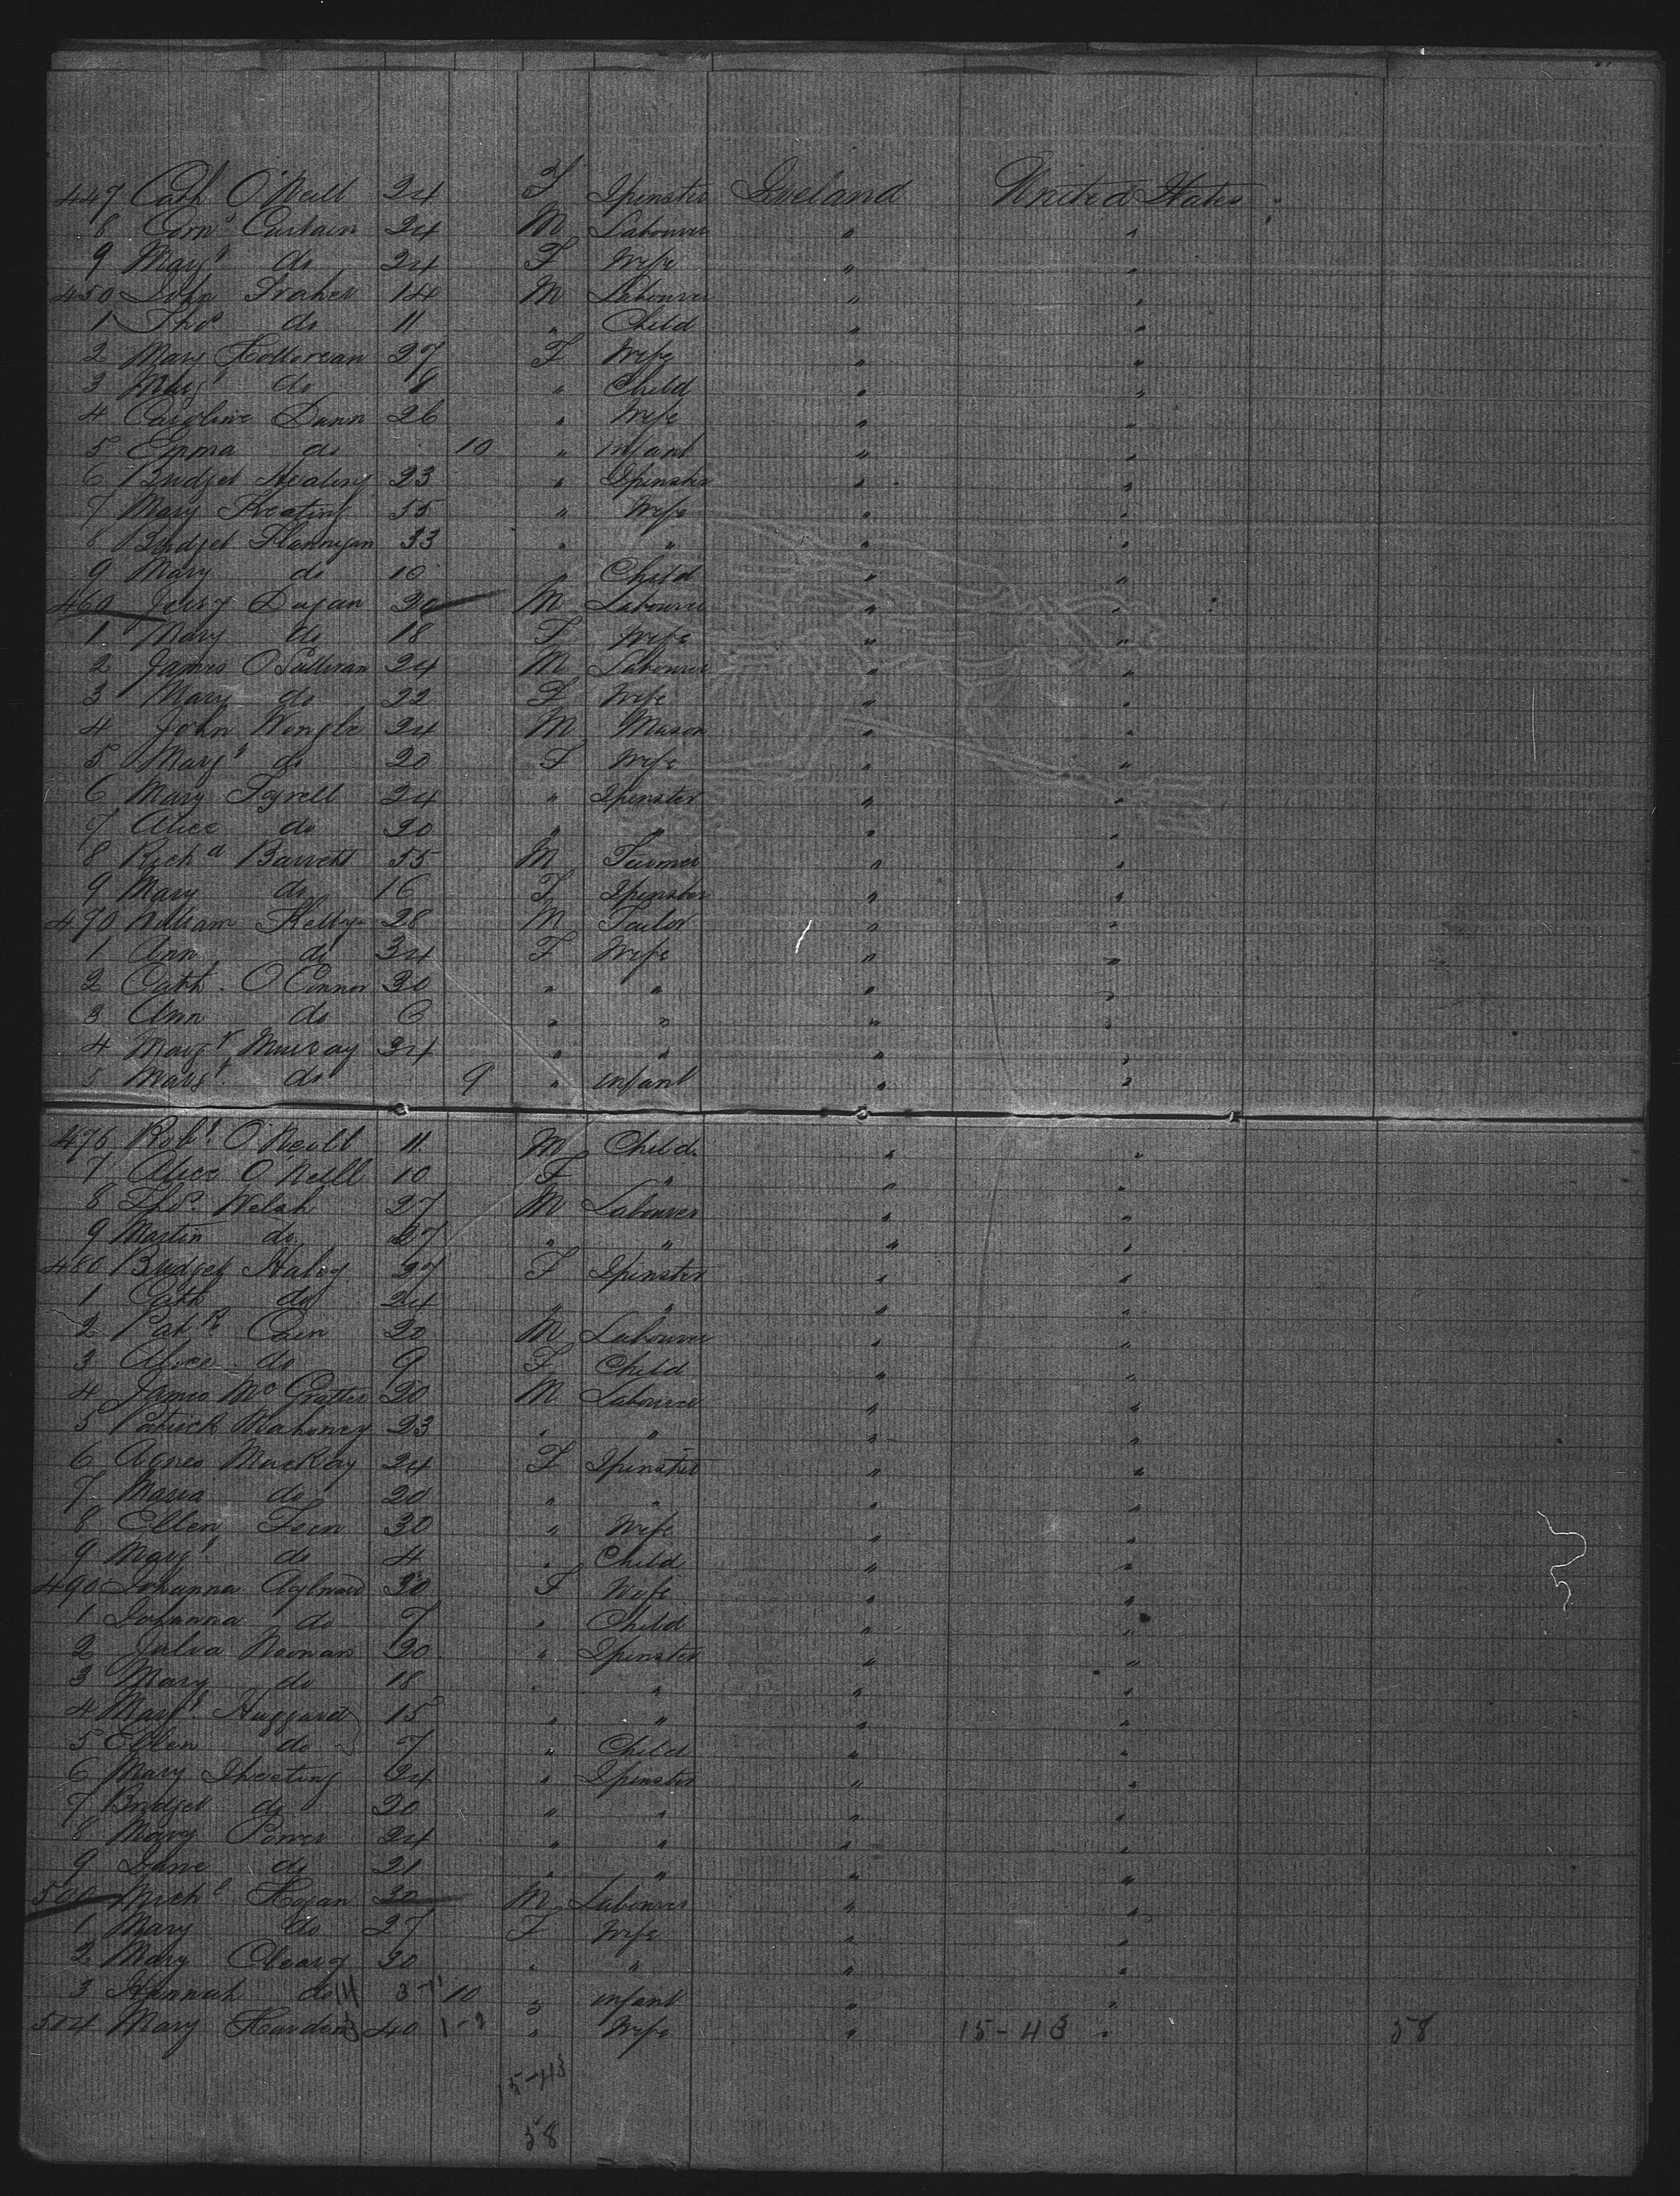 447 Cath O'Neill 24 F Spinster Ireland United States
8 Corns Curtain 24 M Labourer " "
9 Margt do 24 F Wife " "
450 John Fraher 14 M Labourer " "
1 Thos do 11 " Child " "
2 Mary Holloran 27 F Wife " "
3 Margt do " Child " "
4 Caroline Dunn 26 " Wife " "
5 Emma do 10 " Infant " "
6 Bridget Healing 23 " Spinster " "
7 Mary Keating 55 " Wife " "
8 Bridget Flannigan 33 " " " "
9 Mary do 10 " Child " "
460 Jerry Dugan 20 M Labourer " "
1 Mary do 18 F Wife " "
2 James O'Sullivan 24 M Labourer " "
3 Mary do 22 F Wife " "
4 John Wingle 24 M Mason " "
5 Margt do 20 F Wife " "
6 Mary Tyrell 24 " Spinster " "
7 Alice do 20 " " " "
8 Richd Barrett 55 M Farmer " "
9 Mary do 16 F Spinster " "
470 William Kelly 28 M Tailor " "
1 Ann do 34 F Wife " "
2 Cath. O'Connor 30 " " " "
3 Ann do 6 " " " "
4 Margt Murray 34 " " " "
5 Margt. do 9 " infant " "
476 Robt. O'Neill 11 M Child " "
7 Alice O'Neill 10 F " " "
8 Thos. Welsh 27 M Labourer " "
9 Martin do 27 " " " "
480 Bridget Haley 27 F Spinster " "
1 Cath do 24 " " " "
2 Patk Cain 20 M Labourer " "
3 Alice do 9 F Child " "
4 James Mc 20 M Labourer " "
5 Patrick Mahoney 23 " " " "
6 Agnes MacKay 24 F Spinster " "
7 Maria do 20 " " " "
8 Ellen 30 " Wife " "
9 Margt. do 4 " Child " "
490 Johanna Aylward 30 F Wife " "
1 Johanna do 7 " Child " "
2 Julia Noonan 20 " Spinster " "
3 Mary do 18 " " " "
4 Margt Huggard 15 " " " "
5 Ellen do 7 " Child " "
6 Mary Sheeting 24 " Spinster " "
7 Bridget do 20 " " " "
8 Mary Power 24 " " " "
9 Jane do 21 " " " "
500 Michl Hogan 30 M Labourer " "
1 Mary do 27 F Wife " "
2 Mary Cleary 30 " " " "
3 Hannah do 10 " infant " "
504 Mary Harden 40 " Wife " 15-43 " 58
15-43
58